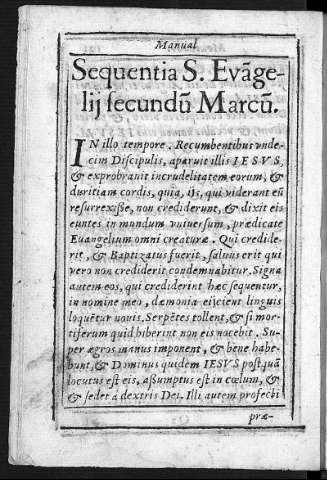 Manual
Sequentia S. Evãge-
lij ſecundũ Marcũ.
IN illo tempore. Recumbentibus vnde-
cim Diſcipulis, aparuit illis IESVS,
& exprobrauit incrudelitatem eorum, &
duritiam cordis, quia, ijs, qui viderant eũ
reſurrexiſſe, non crediderunt, & dixit eis
euntes in mundum vniuerſum, prædicate
Euangelium omni creaturæ. Qui credide-
rit, & Baptizatus fuerit, ſaluus erit qui
vero non crediderit condemnabitur. Signa
autem eos, qui crediderint hæc sequentur,
in nomine meo, dæmonia eijcient linguis
loquẽtur nouis. Serpẽtes tollent, & ſi mor-
tiferum quid biberint non eis nocebit. Su-
per ægros manus imponent, & bene habe-
bunt, & Dominus quidem IESVS poſt quã
locutus eſt eis, aſsumptus eſt in cœlum, &
& ſedet a dextris Dei. Illi autem profecti
præ-